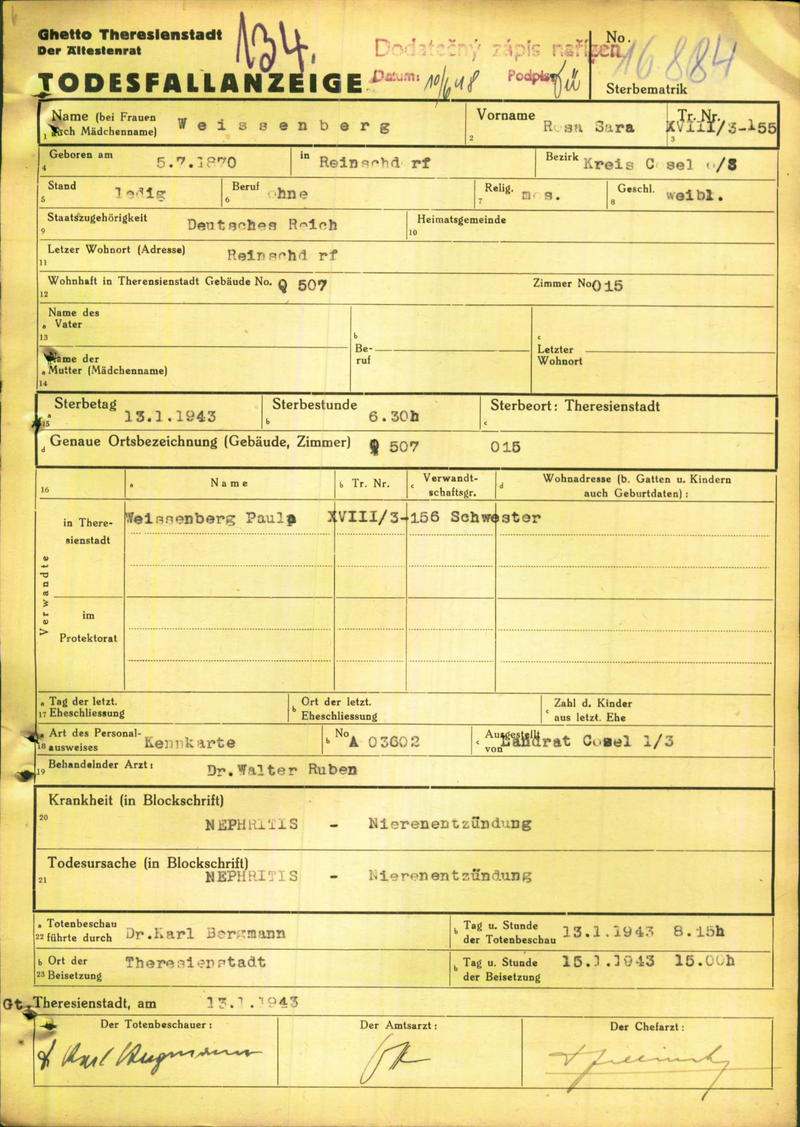 Ghetto Theresienstadt
Der Ältestenrat
134.
Dodatečný zápis nařízen
Datum: 10/6 48 Podpis:
No. 16884
TODESFALLANZEIGE
Sterbematrik
Name (bei Frauen auch Mädchenname) Weissenberg
1
Vorname Rosa Sara
2
Tr. Nr. XVIII/3-155
3
Geboren am 5.7.1870
4
in Reinschd rf
Bezirk Kreis C sel o/S
Stand ledig
5
Beruf ohne
6
Relig. mos.
7
Geschl. weibl.
8
Staatszugehörigkeit Deutsches Reich
9
Heimatsgemeinde
10
Letzer Wohnort (Adresse) Reinschd rf
11
Wohnhaft in Therensienstadt Gebäude No. Q 507
12
Zimmer No 015
Name des
a Vater
13
b
Be-
ruf
c
Letzter
Wohnort
Name der
a Mutter (Mädchenname)
14
a Sterbetag 13.1.1943
15
Sterbestunde 6.30h
b
Sterbeort: Theresienstadt
c
d Genaue Ortsbezeichnung (Gebäude, Zimmer) Q 507 015
16
a Name
b Tr. Nr.
c Verwandt-
schaftsgr.
d Wohnadresse (b. Gatten u. Kindern
auch Geburtdaten) :
Verwandte
in There-
sienstadt
Weissenberg Paula XVIII/3-156 Schwester
im
Protektorat
a Tag der letzt.
17 Eheschliessung
b Ort der letzt.
Eheschliessung
c Zahl d. Kinder
aus letzt. Ehe
a Art des Personal-
18 ausweises Kennkarte
b No A 03602
c Ausgestellt
von Landrat Cosel 1/3
19 Behandelnder Arzt : Dr.Walter Ruben
Krankheit (in Blockschrift)
20
NEPHRITIS - Nierenentzündung
Todesursache (in Blockschrift)
21
NEPHRITIS - Nierenentzündung
a Totenbeschau
22 führte durch Dr.Karl Bergmann
b Tag u. Stunde
der Totenbeschau 13.1.1943 8.15h
b Ort der
23 Beisetzung Theresienstadt
b Tag u. Stunde
der Beisetzung 15.1.1943 15.00h
Gt. Theresienstadt, am 13.1.1943
Der Totenbeschauer :
Der Amtsarzt :
Der Chefarzt :
Karl Bergmann